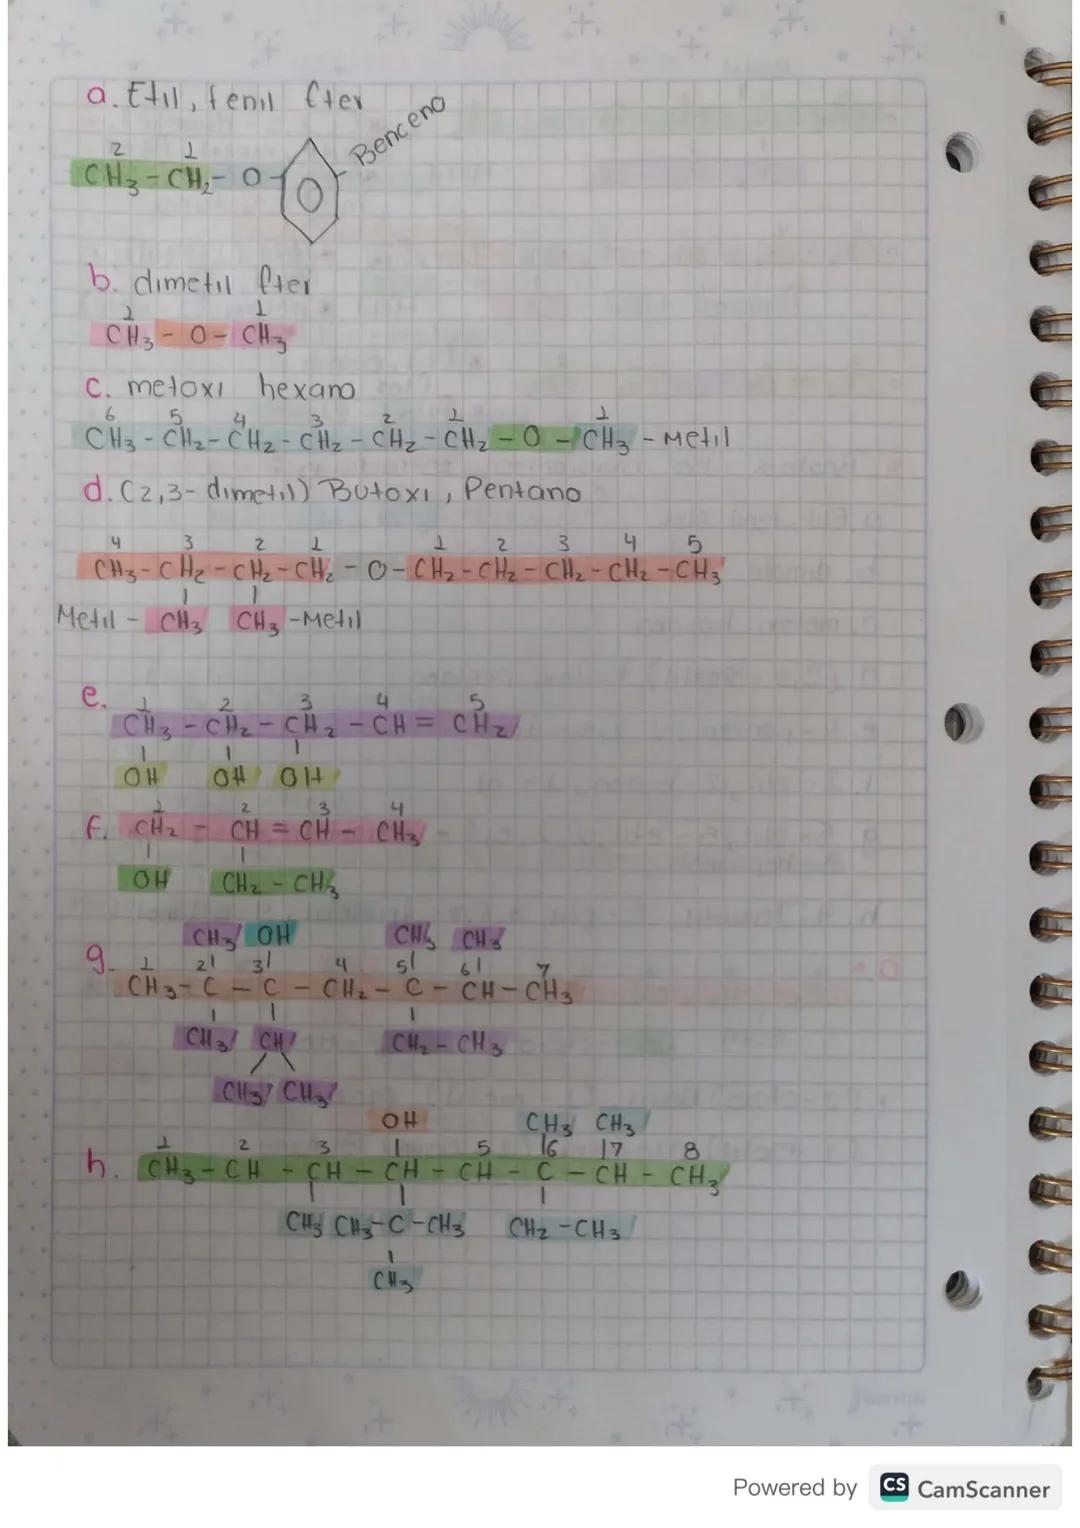 a. Etil, fenil Éter
Benceno
2 1
CH₃ - CH₂ - O -
b. dimetil Éter
1 1
CH₃ - O - CH₃
c. metoxi hexano
6 5 4 3 2 1 1
CH₃ - CH₂ - CH₂ - CH₂ - CH₂ - CH₂ - O - CH₃ - Metil
d. (2,3- dimetil) Butoxi, Pentano
4 3 2 1 1 2 3 4 5
CH₃ - CH₂ - CH₂ - CH₂ - O - CH₂ - CH₂ - CH₂ - CH₂ - CH₃
Metil - CH₃ CH₃ - Metil
e. 1 2 3 4 5
CH₃ - CH₂ - CH₂ - CH = CH₂
OH OH OH
1 2 3 4
f. CH₂ - CH = CH - CH₃
OH CH₂ - CH₃
CH₃ OH CH₃ CH₃
g. 1 2 3 4 5 6 7
CH₃ - C - C - CH₂ - C - CH - CH₃
CH₃ CH CH₂ - CH₃
CH₃ CH₃
OH CH₃ CH₃
1 2 3 5 6 7 8
h. CH₃ - CH - CH - CH - CH - C - CH - CH₃
CH₃ CH₃ - C - CH₃ CH₂ - CH₃
CH₃
Powered by CS CamScanner